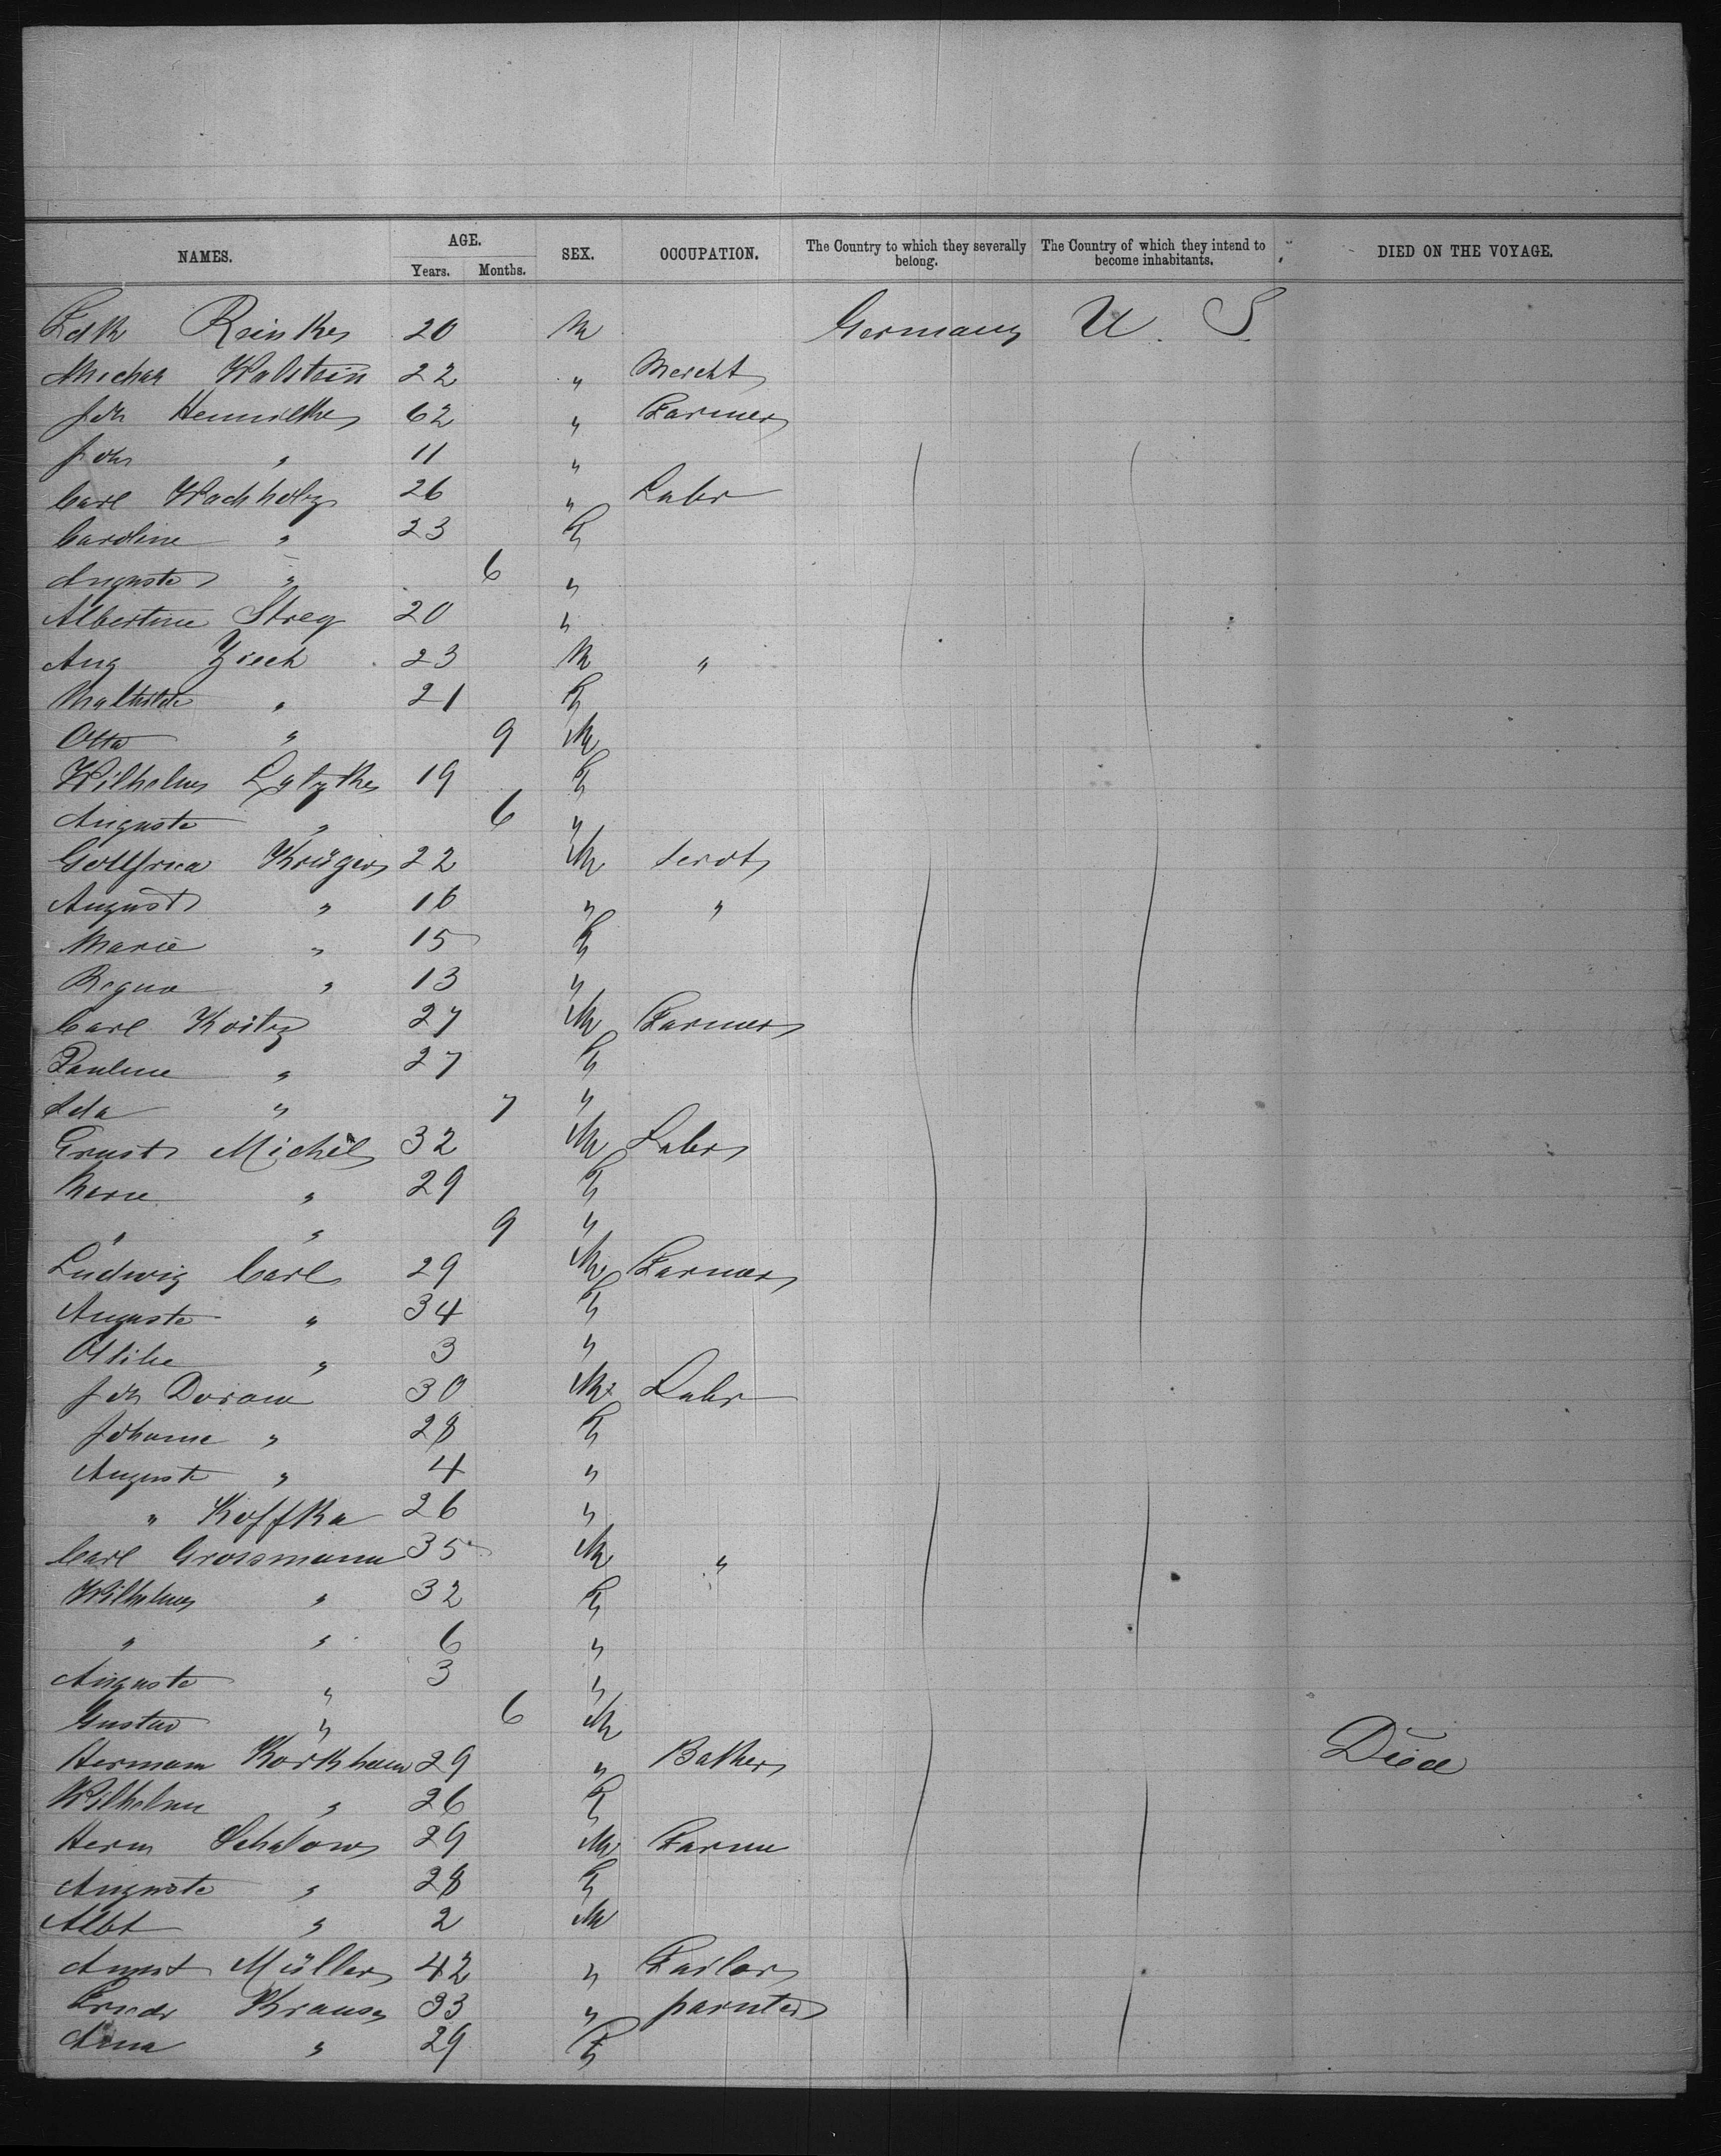 NAMES. AGE. SEX. OCCUPATION. The Country to which they severally belong. The Country of which they intend to become inhabitants. DIED ON THE VOYAGE.
Years. Months.
Reinke 20 M Germany U. S.
Walstein 22 " Mercht
Joh 62 " Farmer
Joh " 11 "
Carl Wachholz 26 " Labr
Caroline " 23 F
Auguste " 6 "
Albertine Streg 20 "
Aug 23 M "
Mathilde " 21 F
Otto " 9 M
Wilhelm 19 F
Auguste " 6 "
Krüger 22 M servt
August " 16 " "
Marie " 15 F
" 13 "
Carl Koitz 27 M Farmer
Pauline " 27 F
Ida " 7 "
Ernst Michel 32 M Labr
Marie " 29 F
" " 9 "
Ludwig Carl 29 M Farmer
Auguste " 34 F
Ottilie " 3 "
Joh 30 M Labr
Johanne " 28 F
Auguste " 4 "
" Koffka 26 "
Carl Grossmann 35 M "
Wilhelm " 32 F
" " 6 "
Auguste " 3 "
Gustav " 6 M
Hermann 29 " Baker Died
Wilhelm " 26 F
Herm Schalow 29 M Farme
Auguste " 28 F
Albt " 2 M
Müller 42 " Tailor
Friedr Krause 33 " painter
Anna " 29 F